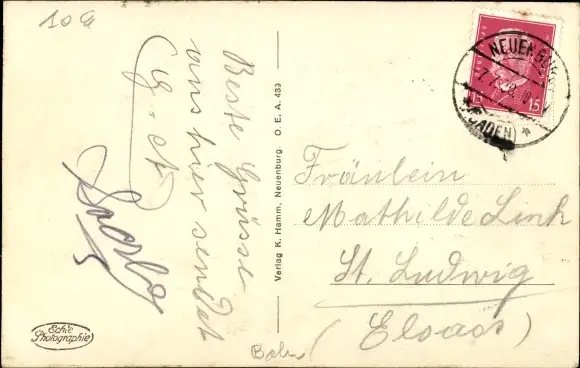 10 a
Beste Grüsse
aus hier sendet
Verlag K. Hamm, Neuenburg. O. E. A. 439
NEUENBURG
(BADEN)
15 15
Fräulein
Mathilde Link
St. Ludwig
(Elsass)
Echte
Photographie